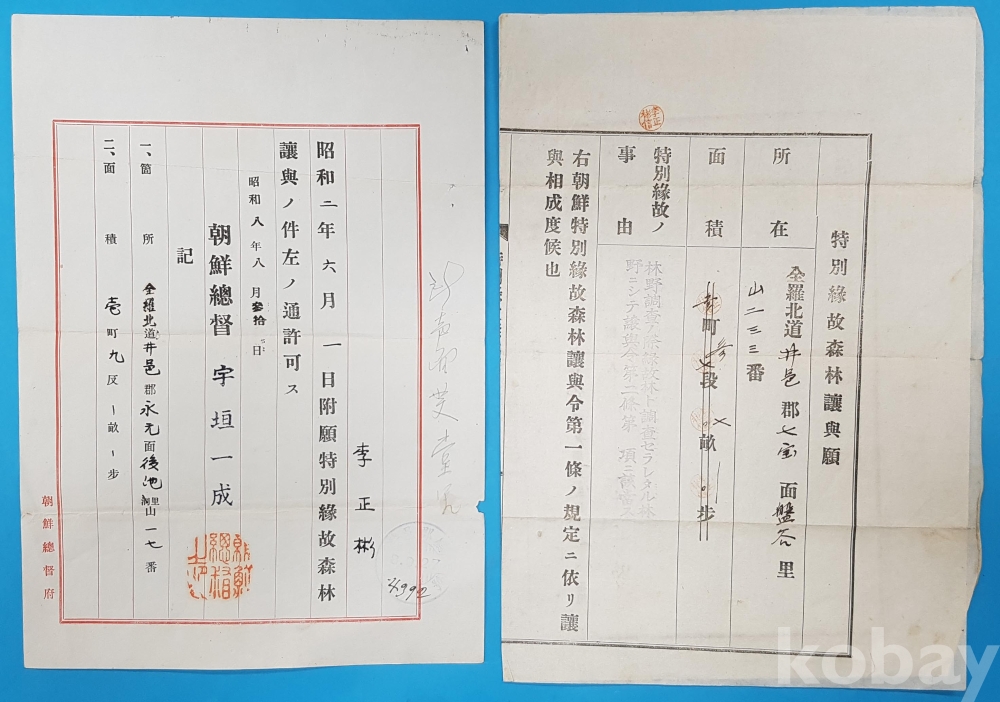 李正彬
昭和二年六月一日附願特別緣故森林
讓與ノ件左ノ通許可ス
昭和八年八月參拾日
朝鮮總督 宇垣一成
記
一、箇所 全羅北道井邑郡永元面後池洞里山一七番
二、面積 壱町九反〡畝〡步
朝鮮總督府
朝鮮總督之印
特別緣故森林讓與願
所在 全羅北道井邑郡七宝面盤谷里
山二三三番
面積 町 段 畝 步
特別緣故ノ
事由
林野調査ノ際緣故林ト調査セラレタル林
野ニシテ讓與令第二條第 項ニ該當ス
右朝鮮特別緣故森林讓與令第一條ノ規定ニ依リ讓
與相成度候也
kobay